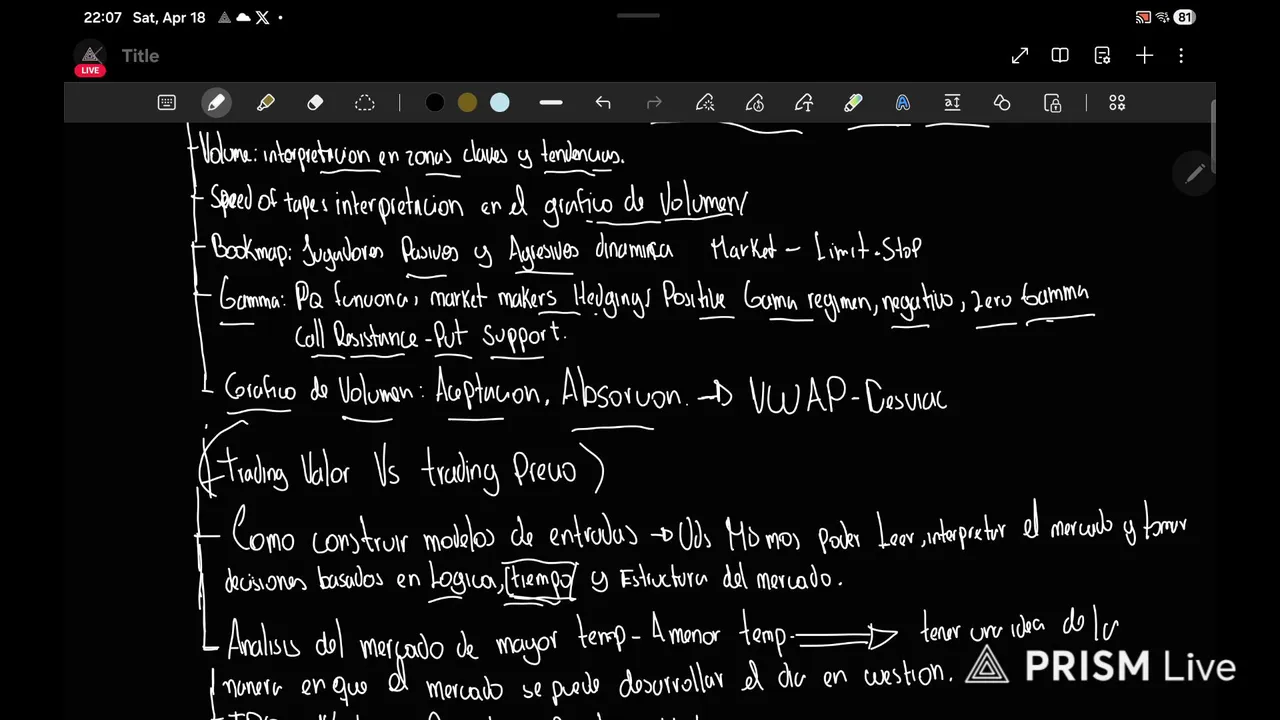 22:07 Sat, Apr 18
81
LIVE
Title
Volume: interpretacion en zonas claves y tendencias.
Speed of tapes interpretacion en el grafico de Volumen
Bookmap: Jugadores Pasivos y Agresivos dinamica Market - Limit - Stop
Gamma: PQ funciona, market makers Hedging, Positive Gama regimen, negativo, zero Gamma
Call Resistance - Put support.
Grafico de Volumen: Aceptacion, Absorcion. → VWAP - Desviac
(trading Valor Vs trading Precio)
Como construir modelos de entradas → Uds Mismos poder Leer, interpretar el mercado y tomar
decisiones basados en Logica, tiempo y Estructura del mercado.
Analisis del mercado de mayor temp - A menor temp. → tener una idea de la
manera en que el mercado se puede desarrollar el dia en cuestion.
PRISM Live